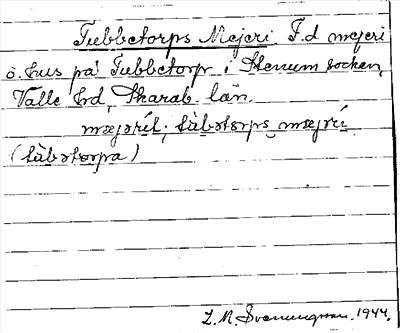 Tubbetorps Mejeri F.d mejeri
o. hus på Tubbetorp i Stenum socken,
Valle hd, Skarab. län.
mæjərít; tùbətɔrps mæjrí
(tùbətɔrpa)
L. M. Svenungsson. 1944.